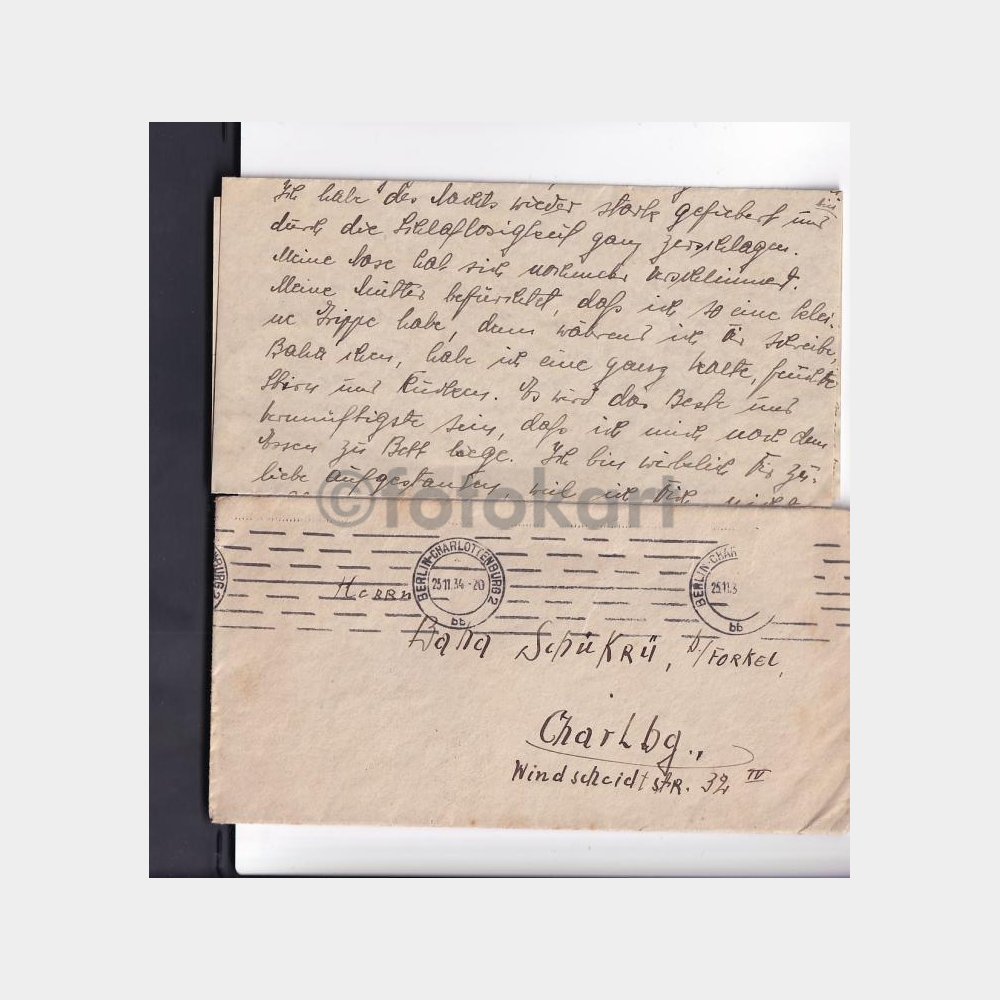 Ich habe des Nachts wieder stark gefiebert und bin
durch die Schlaflosigkeit ganz zerschlagen.
Meine Nase hat sich nochmehr verschleimert.
Meine Mutter befürchtet, daß ich so eine klei-
ne Grippe habe, denn während ich Dir schreibe,
Baha chen, habe ich eine ganz kalte, feuchte
Stirn und Rücken. Es wird das Beste und
vernünftigste sein, daß ich mich nach dem
Essen zu Bett lege. Ich bin wirklich Dir zu-
liebe aufgestanden, weil ich Dich
©fotokart
BERLIN-CHARLOTTENBURG 2
25.11.34.-20
bb
BERLIN-CHAR
25.11.3
bb
NBURG 2
Herrn
Baha Schükrü, b/Forkel,
Charlbg.,
Windscheidtstr. 32 IV